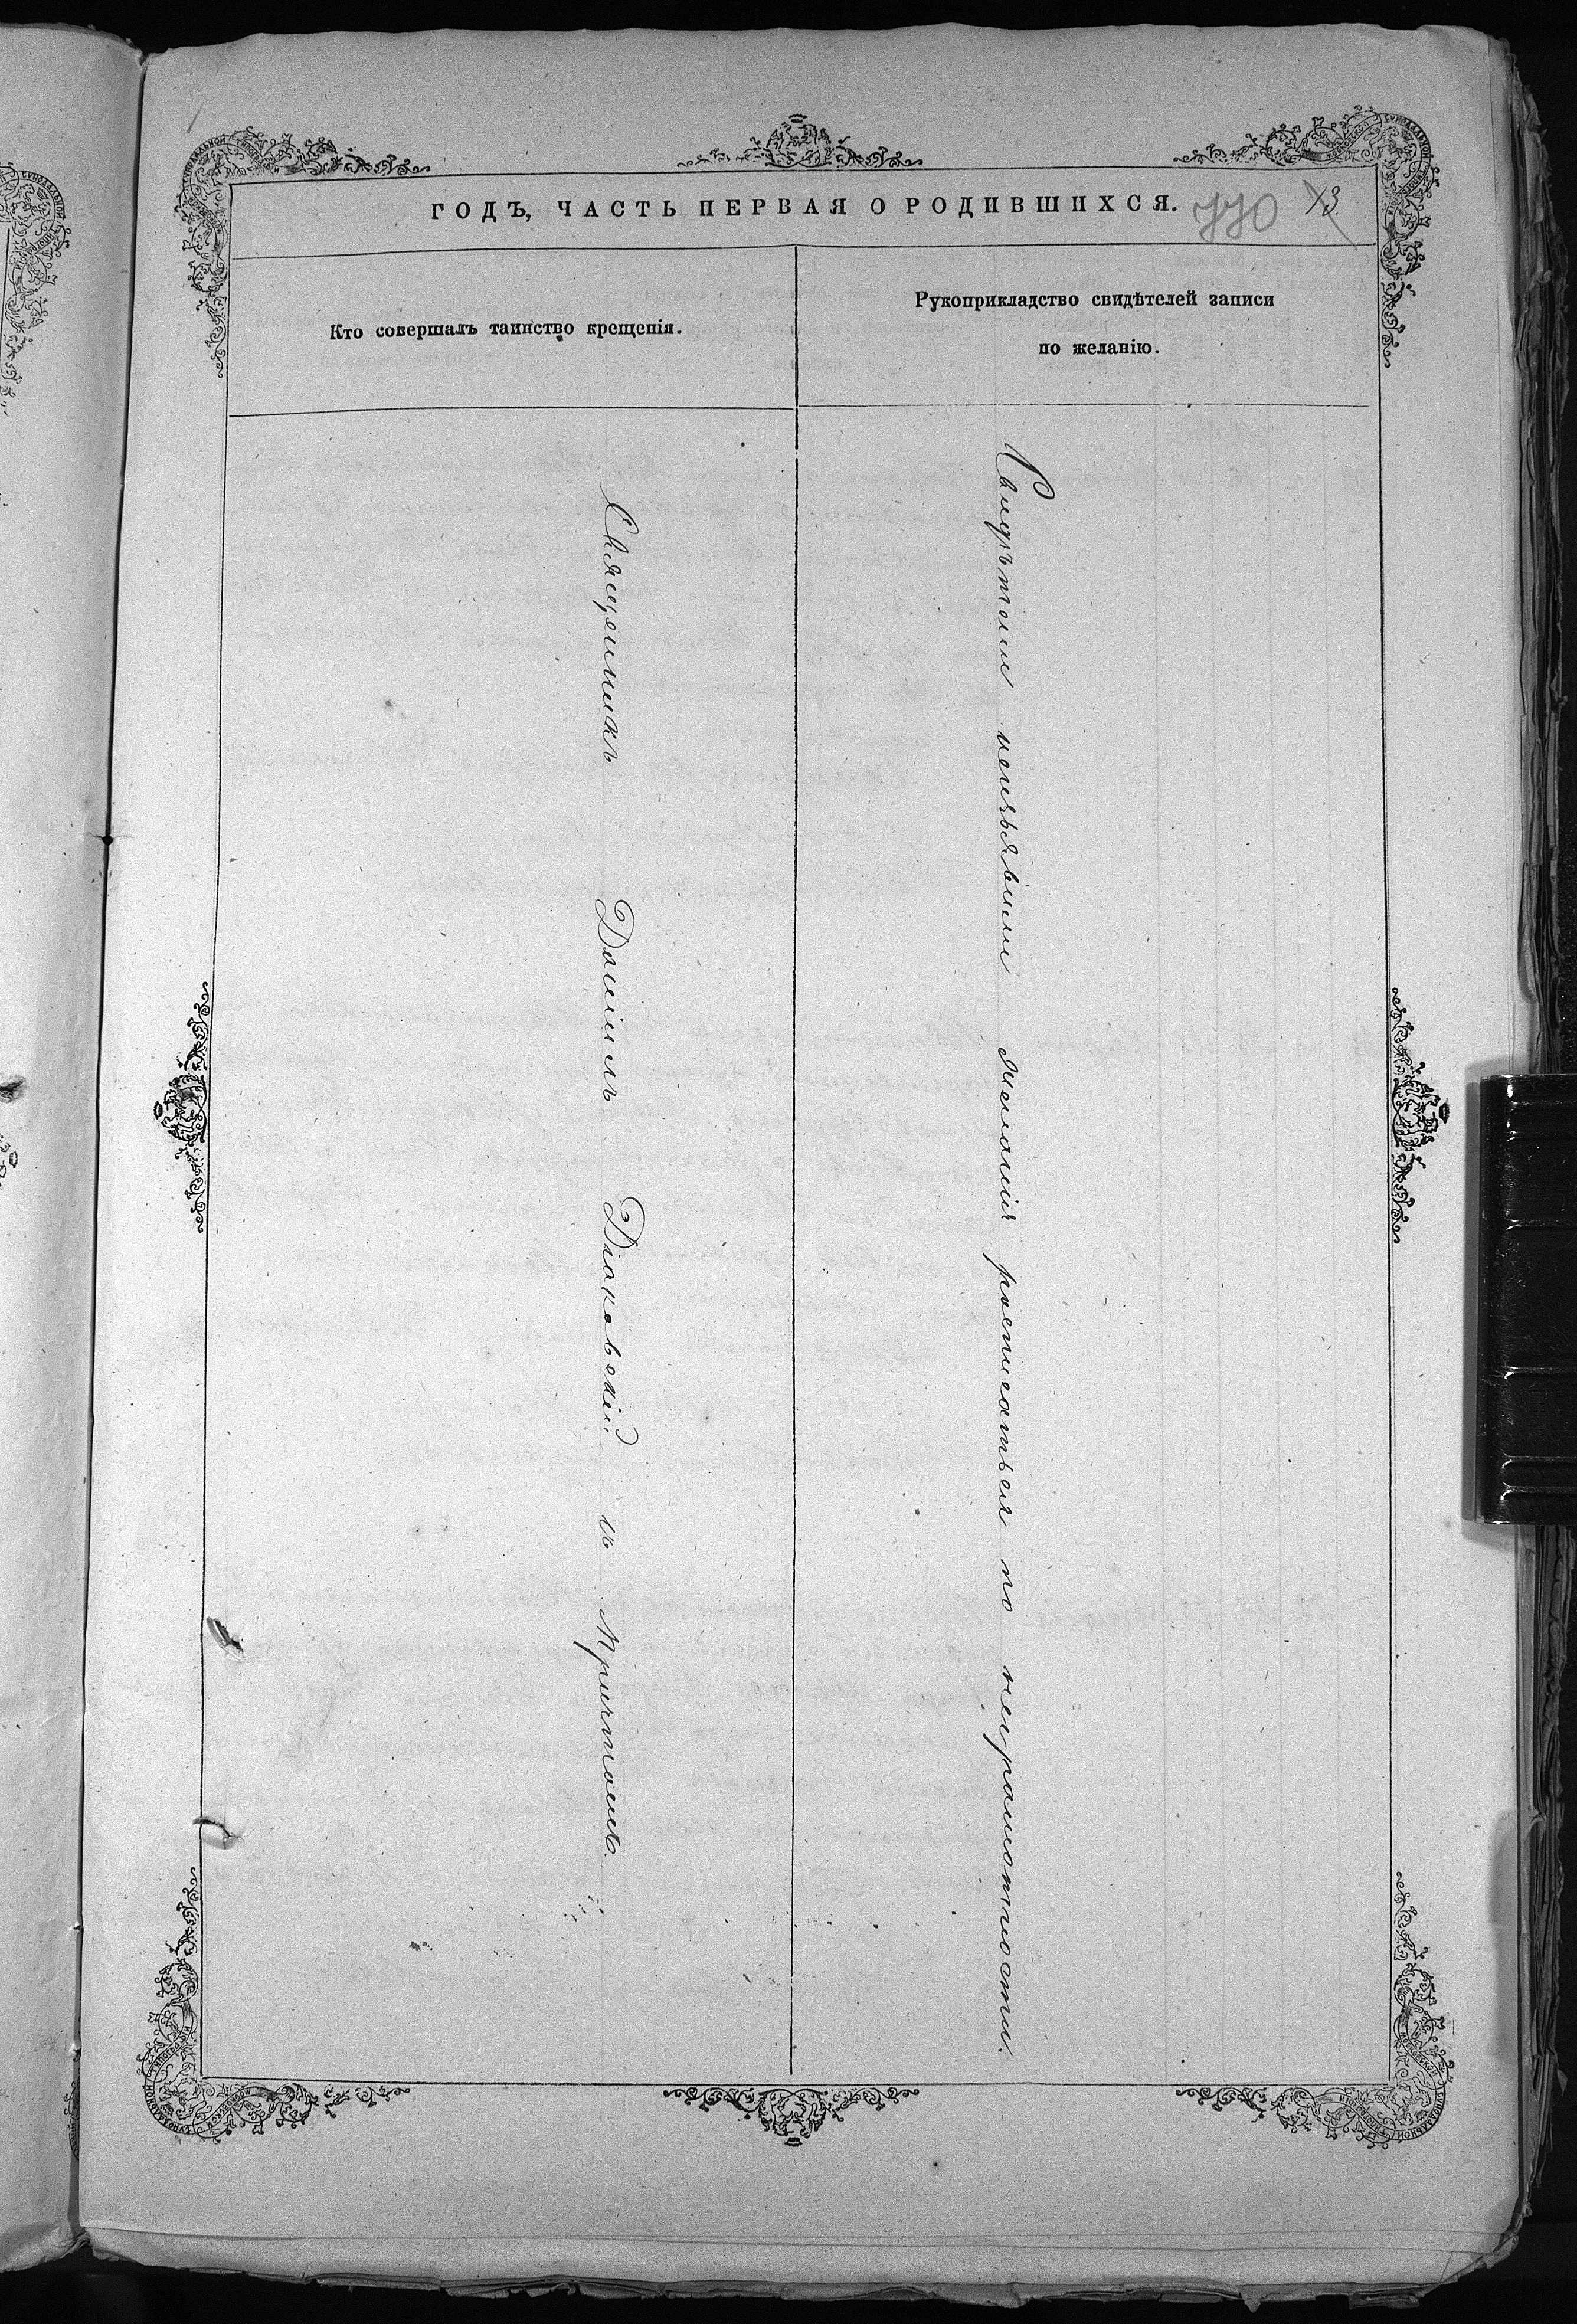 ГОДЪ, ЧАСТЬ ПЕРВАЯ О РОДИВШИХСЯ.
770 13
Кто совершалъ таинство крещенія.
Рукоприкладство свидѣтелей записи
по желанію.
Священникъ Даніилъ Діаковскій съ причтомъ.
Свидѣтели неизъявили желанія росписатьса по неграмотности.